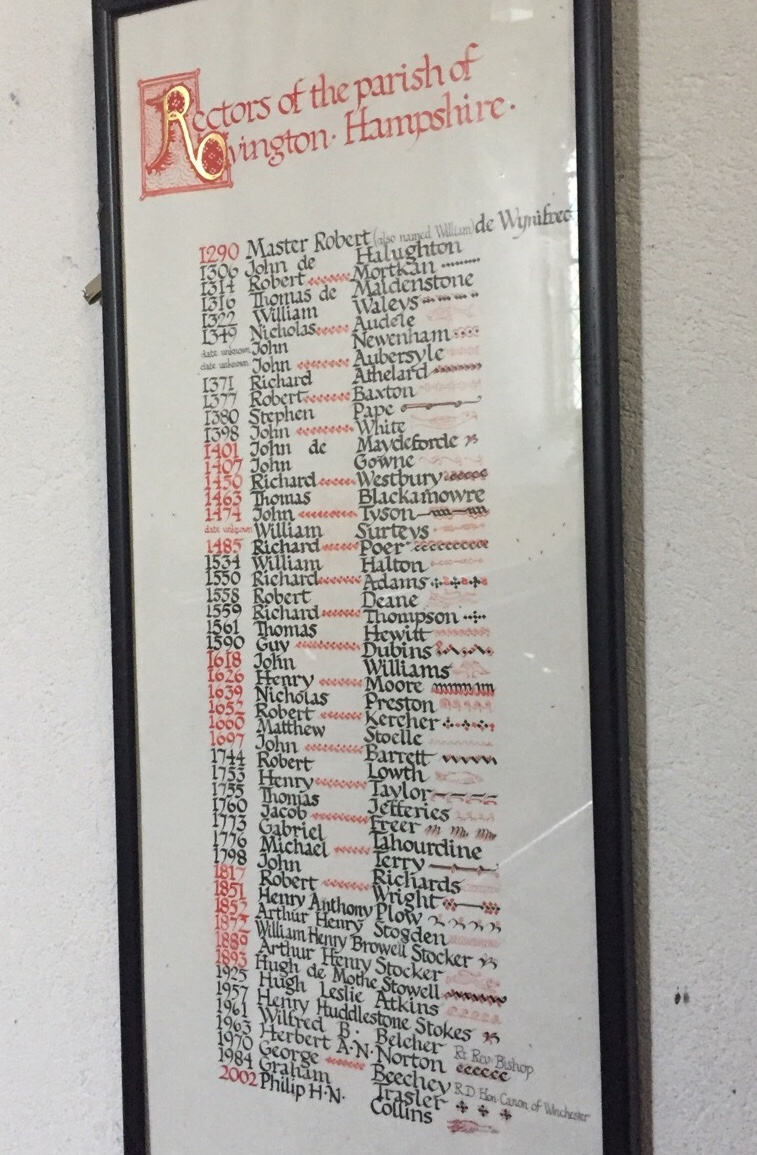 Rectors of the parish of
Ovington · Hampshire ·
1290 Master Robert (also named William) de Wynifred
1306 John de Halughton
1314 Robert Mortkan
1316 Thomas de Maidenstone
1322 William Waleys
1349 Nicholas Audele
date unknown John Newenham
date unknown John Aubersyle
1371 Richard Athelard
1377 Robert Baxton
1380 Stephen Pape
1398 John White
1401 John de Maydeforde
1407 John Gowne
1450 Richard Westbury
1463 Thomas Blackamowre
1474 John Tyson
date unknown William Surteys
1485 Richard Poer
1534 William Halton
1550 Richard Adams
1558 Robert Deane
1559 Richard Thompson
1561 Thomas Hewitt
1590 Guy Dubins
1618 John Williams
1626 Henry Moore
1639 Nicholas Preston
1652 Robert Kercher
1660 Matthew Stoelle
1697 John Barrett
1744 Robert Lowth
1753 Henry Taylor
1755 Thomas Jefferies
1760 Jacob Freer
1773 Gabriel Tahourdine
1776 Michael Terry
1798 John Richards
1817 Robert Wright
1851 Henry Anthony Plow
1852 Arthur Henry Stogden
1872 William Henry Browell Stocker
1889 Arthur Henry Stocker
1893 Hugh de Mothe Stowell
1925 Hugh Leslie Atkins
1957 Henry Huddlestone Stokes
1961 Wilfred B· Belcher Rt Rev: Bishop
1963 Herbert A·N· Norton
1970 George Beechey R.D Hon Canon of Winchester
1984 Graham Trasler
2002 Philip H·N· Collins